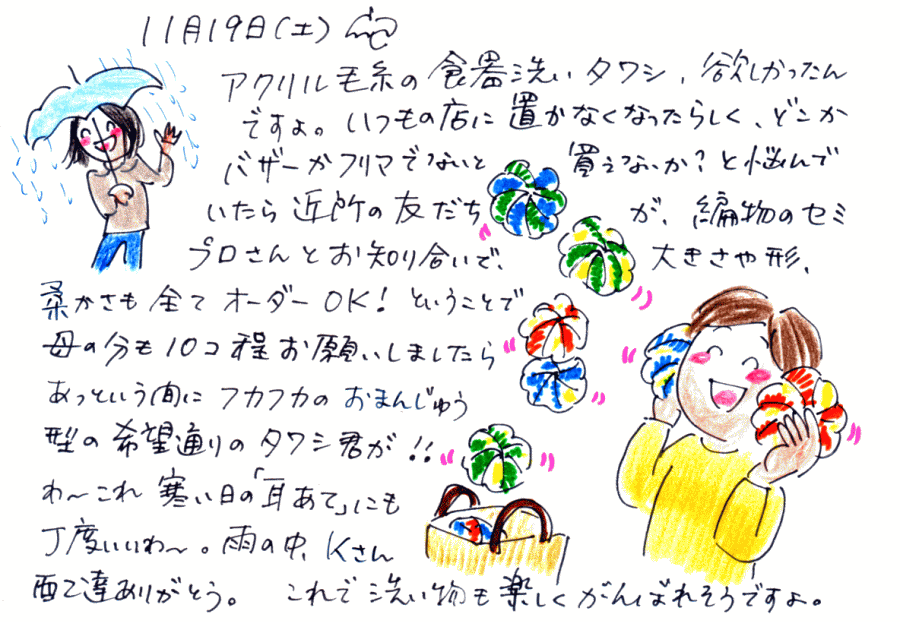 11月19日(土)
アクリル毛糸の食器洗いタワシ、欲しかったん
ですよ。いつもの店に置かなくなったらしく、どこか
バザーかフリマでないと買えないか?と悩んで
いたら近所の友だちが、編物のセミ
プロさんとお知り合いで、大きさや形、
柔かさも全てオーダーOK!ということで
母の分も10コ程お願いしましたら
あっという間にフカフカのおまんじゅう
型の希望通りのタワシ君が!!
わ〜これ寒い日の「耳あて」にも
丁度いいわ〜。雨の中、Kさん
配達ありがとう。これで洗い物も楽しくがんばれそうですよ。